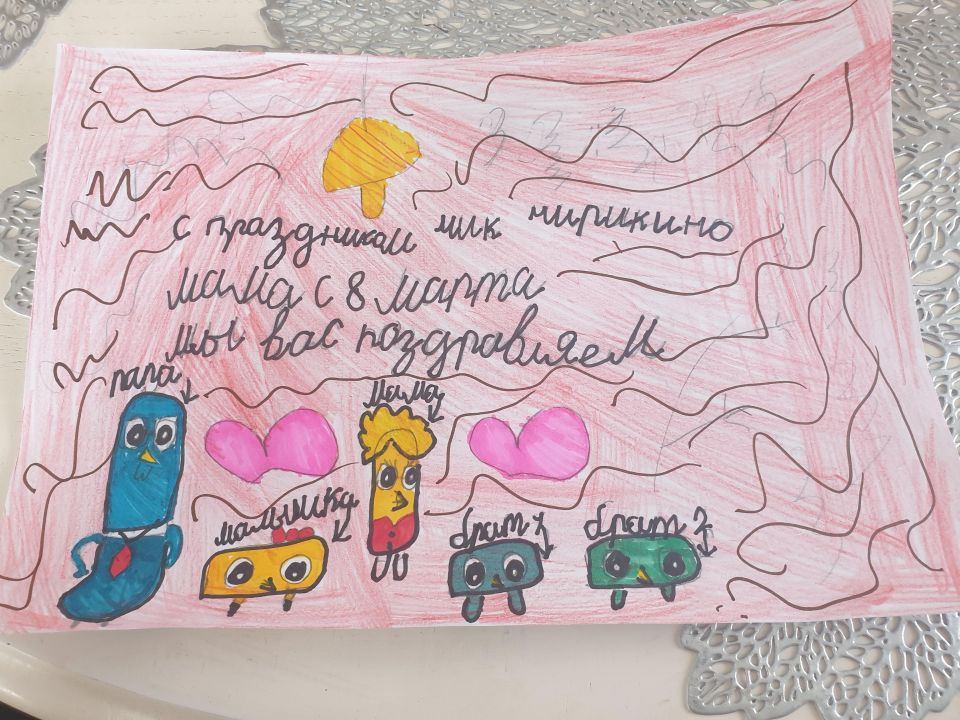 с праздникам мик мирикино
мама с 8 марта
мы вас поздравляем
папа
мама
малышка
брат 1
брат 2